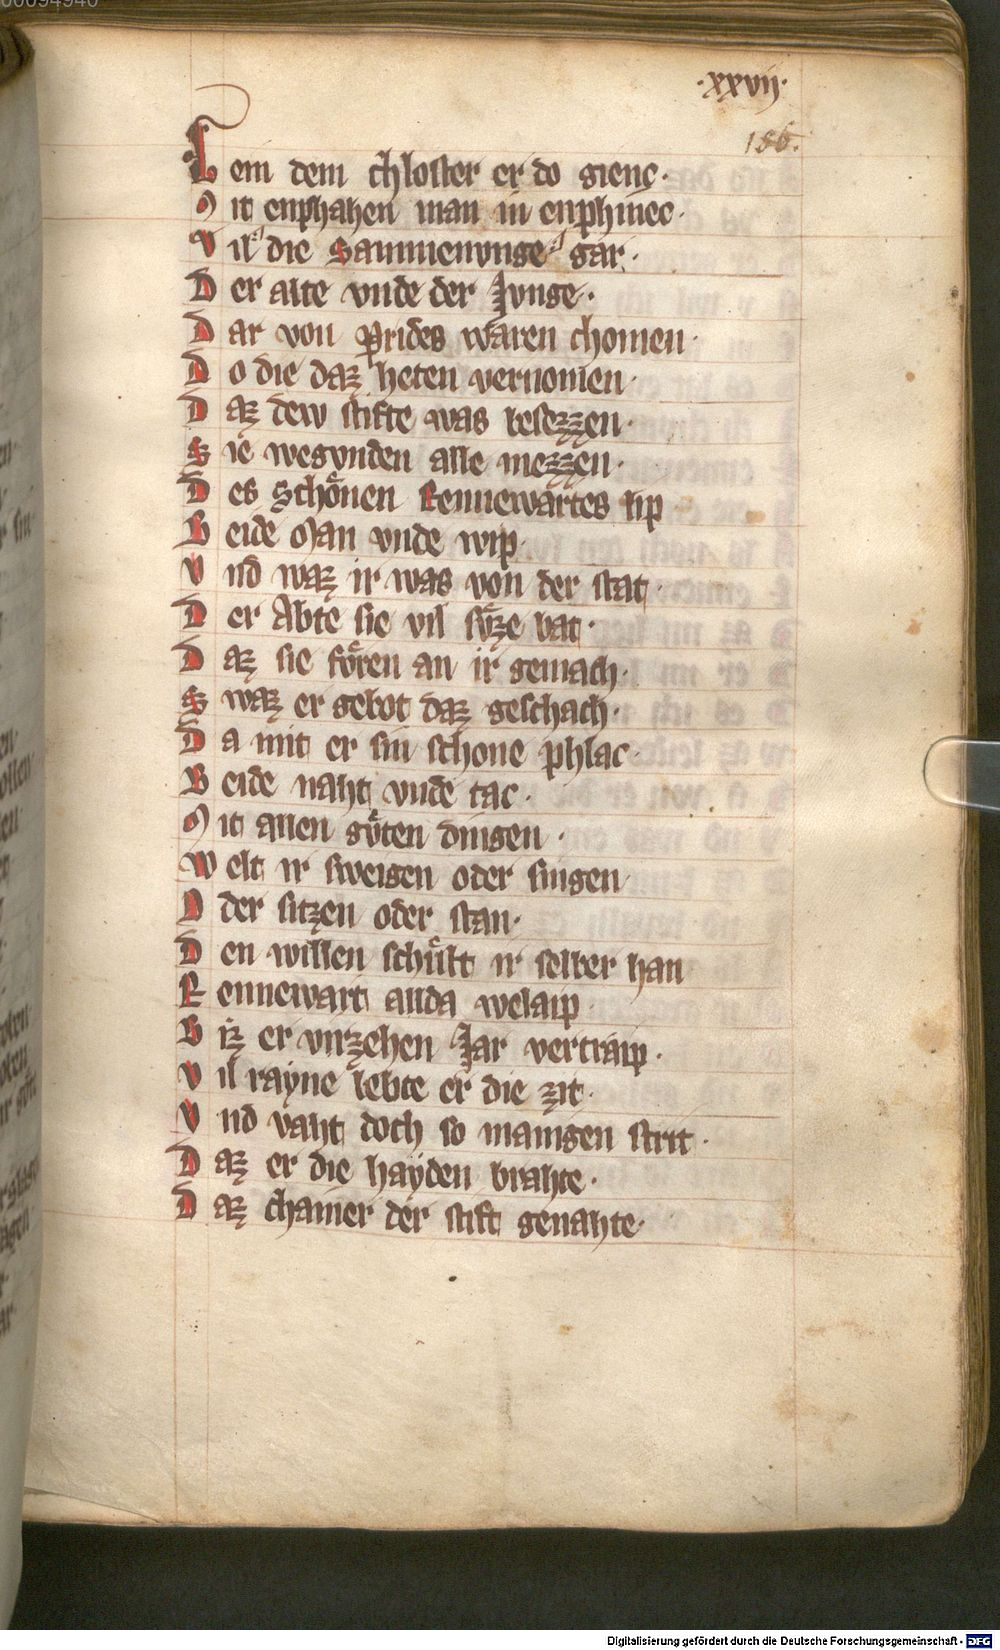 ·xxvij·
156.
L em dem chloster er do gienc·
M it enphahen man in enphinec·
V il die Sammenvnge gar·
D er alte vnde der Jvnge·
D ar von prides waren chomen·
D o die daz heten vernomen·
D az dew stifte was besezzen·
S ie wegvnden alle mezzen·
D es Schoͤnen Rennewartes lip
B eide Man vnde wip·
V nd waz ir was von der stat·
D er Abte sie vil svͤze bat·
D az sie foͤren an ir gemach·
S waz er gebot daz geschach·
D a mit er sin schone phlac·
B eide naht vnde tac·
M it allen goͤten dingen·
W elt ir sweigen oder singen
O der sitzen oder stan·
D en willen schuͤlt ir selber han
R ennewart allda welaip
B iz er virzehen Jar vertraip·
V il rayne lebte er die zit·
V nd vaht doch so manigen strit·
D az er die hayden brahte·
D az chainer der stift genahte·
Digitalisierung gefördert durch die Deutsche Forschungsgemeinschaft - DFG